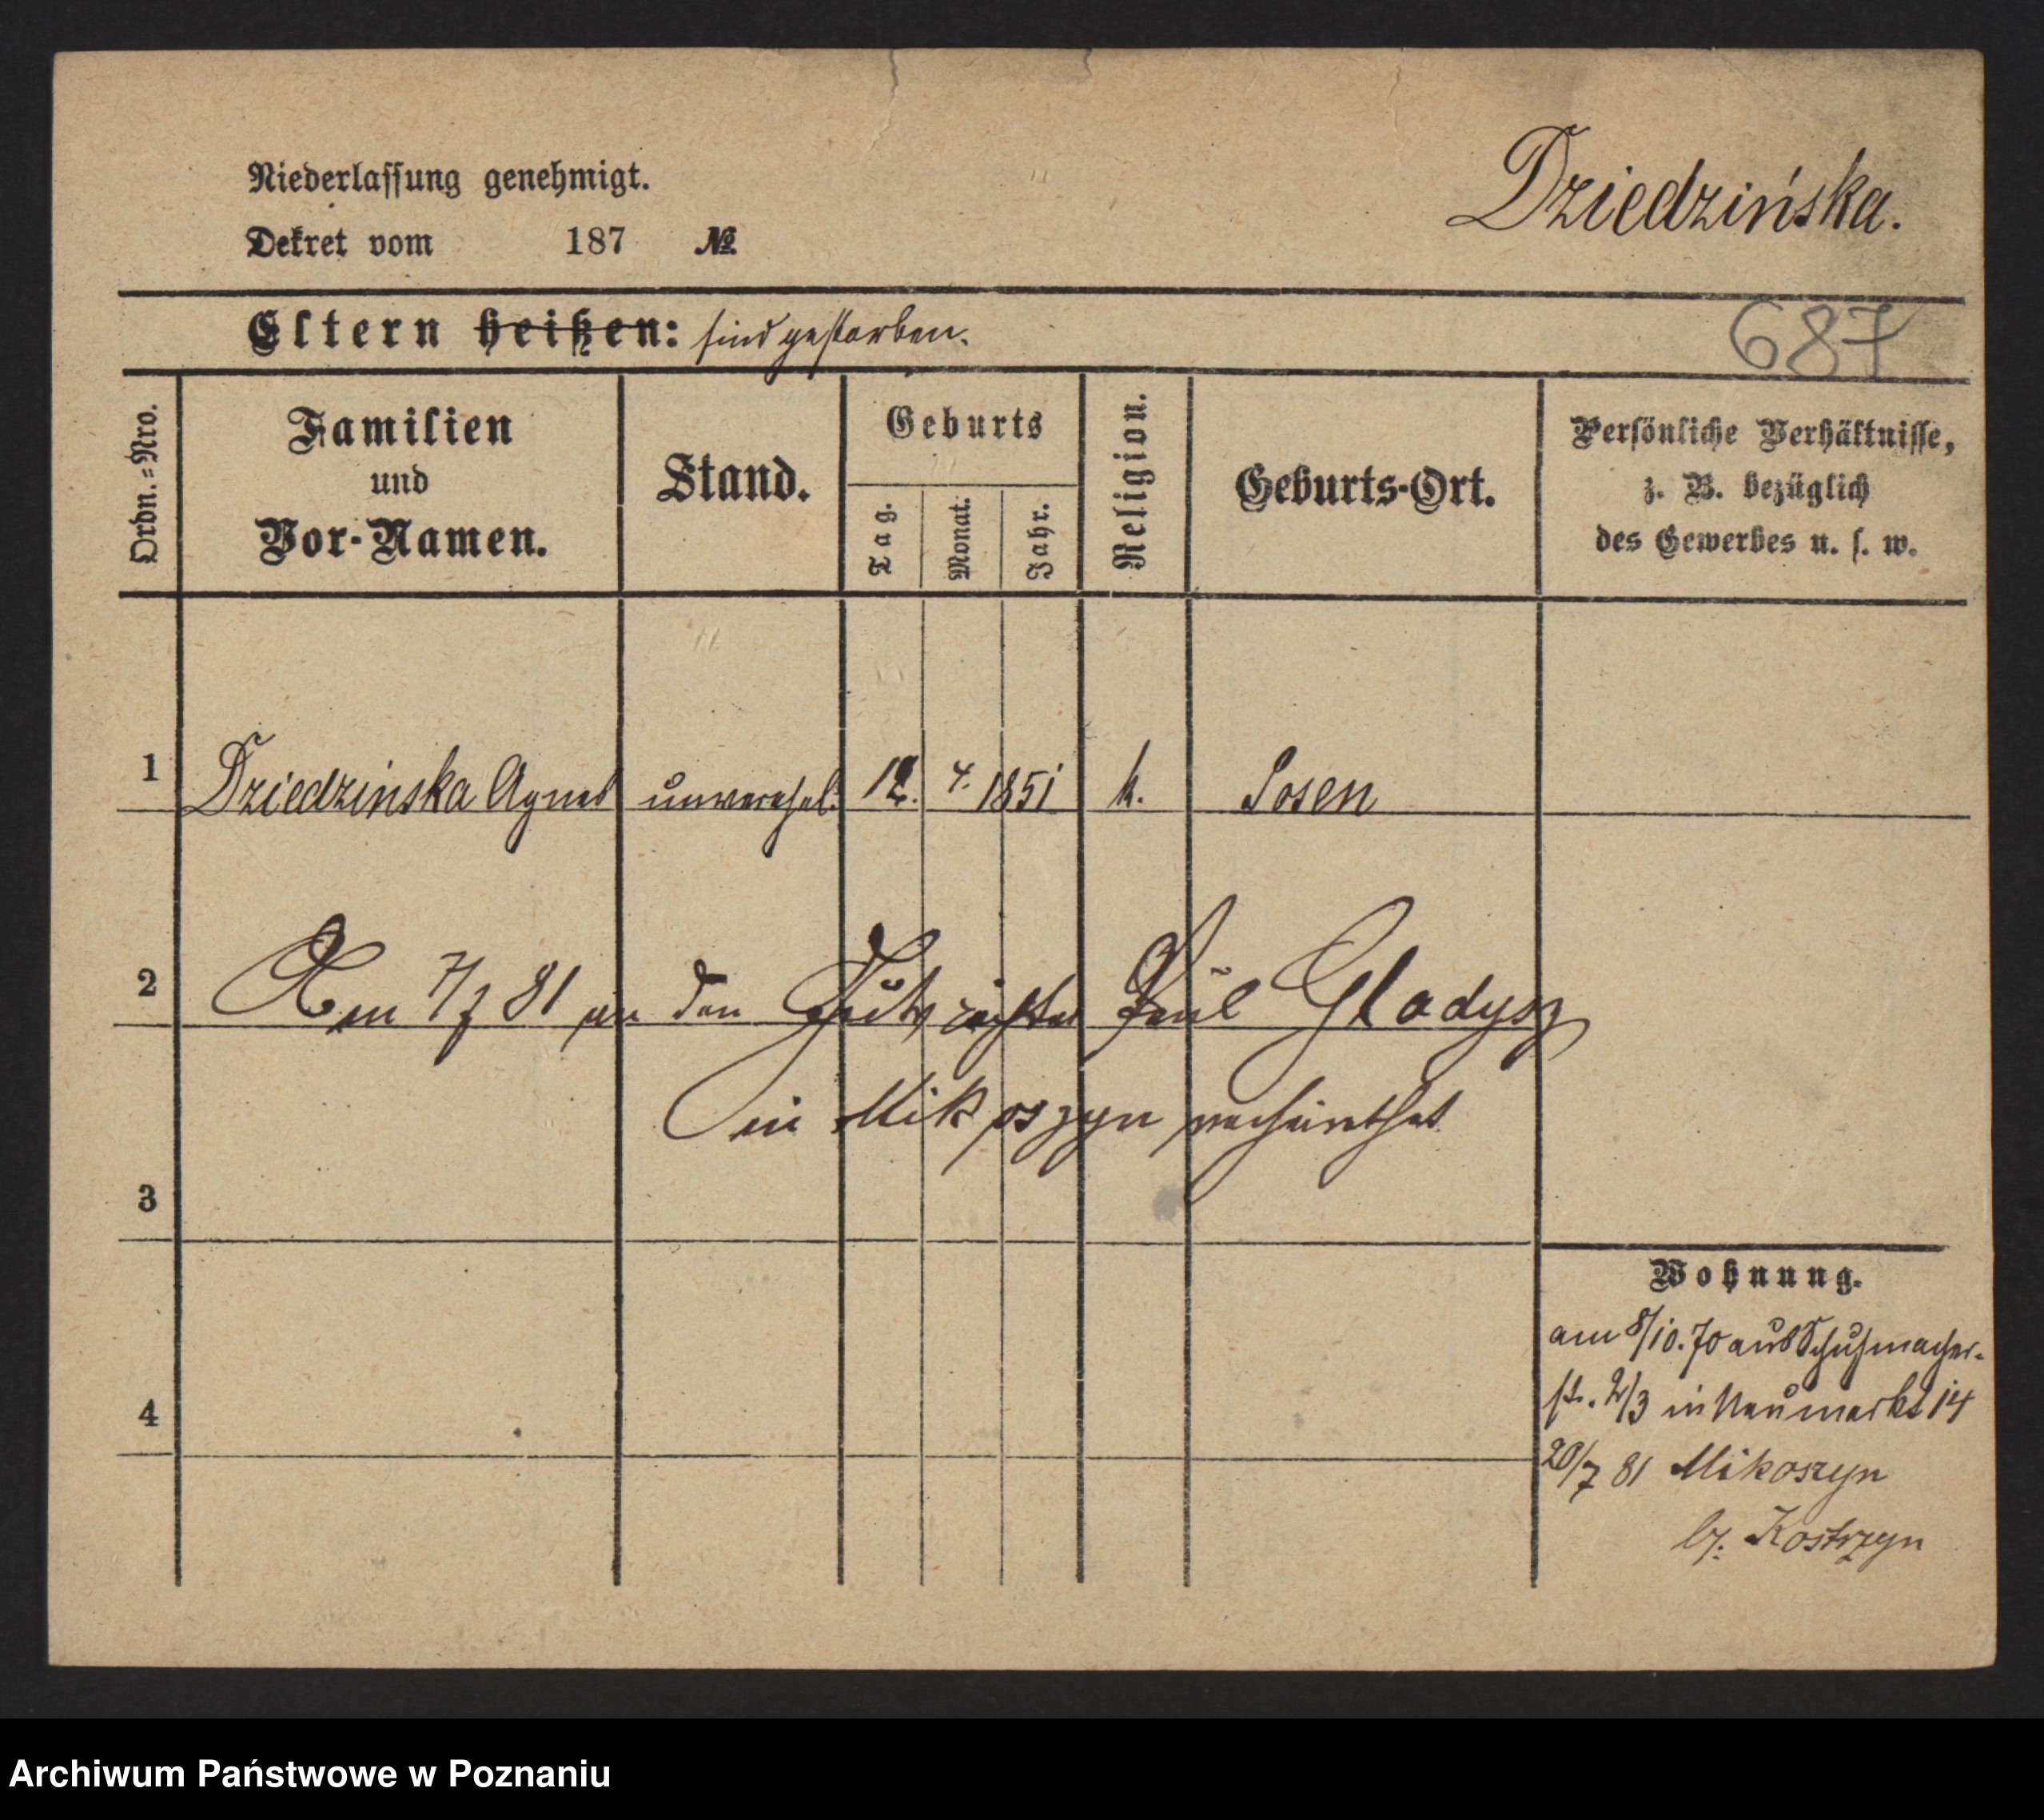 Niederlassung genehmigt.
Dekret vom 187 №
Dziedzińska.
Eltern heißen: sind gestorben.
687
Ordn.=Nro.
Familien
und
Vor-Namen.
Stand.
Geburts
Tag.
Monat.
Jahr.
Religion.
Geburts-Ort.
Persönliche Verhältnisse,
z. B. bezüglich
des Gewerbes u. s. w.
1 Dziedzinska Agnes unverehel. 12. 4. 1851 k. Posen
2 Am 7/7 81 an den Gutspächter Paul Gladysz
in Mikoszyn verheirathet
3
4
Wohnung.
am 8/10. 70 aus Schuhmacher-
str. 2/3 in Neumarkt 14
20/7 81 Mikoszyn
b/. Kostrzyn
Archiwum Państwowe w Poznaniu